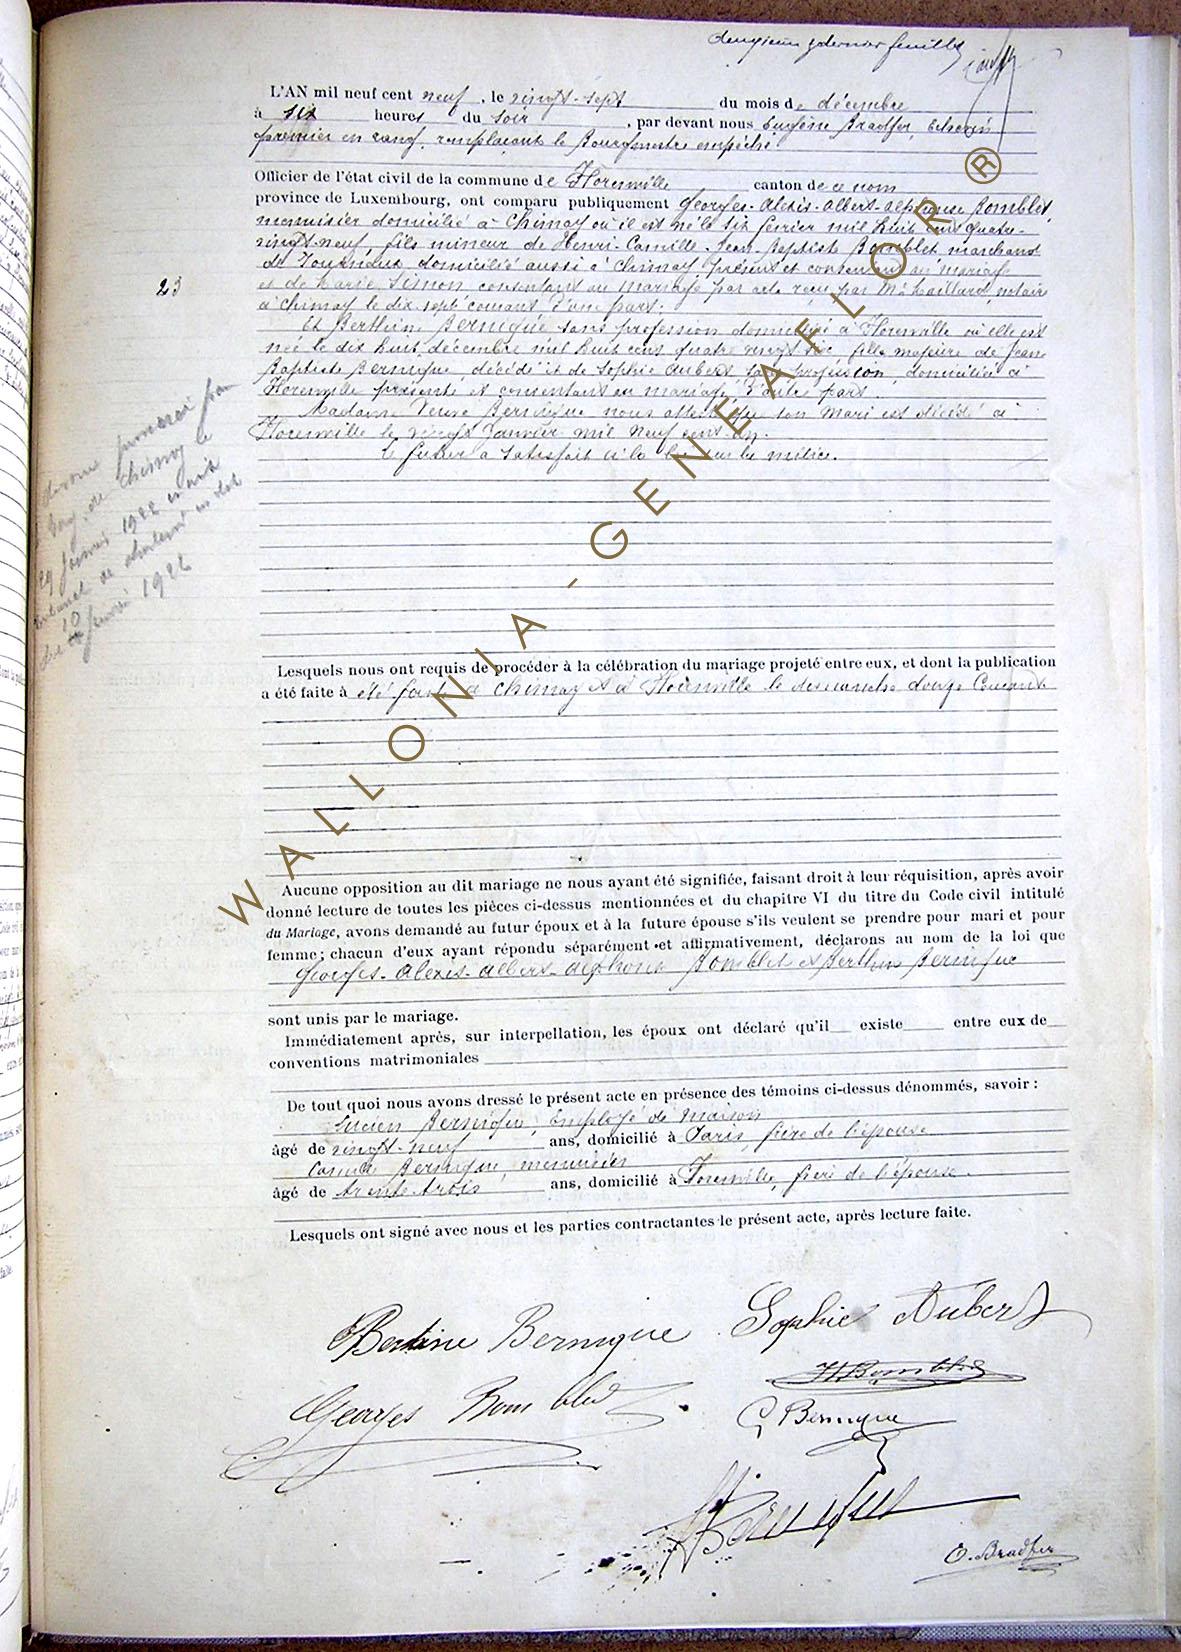 deuxième & dernier feuillet
L'AN mil neuf cent neuf, le vingt-sept du mois de décembre
à six heures du soir, par devant nous Eugène Bradfer, Echevin
premier en rang, remplaçant le Bourgmestre empêché
Officier de l'état civil de la commune de Florenville canton de ce nom
province de Luxembourg, ont comparu publiquement Georges-Alexis-Albert-Alphonse Bomblet,
menuisier domicilié à Chimay où il est né le six février mil huit cent quatre-
vingt-neuf, fils mineur de Henri-Camille-Jean-Baptiste Bomblet, marchand
de Tourneux, domicilié aussi à Chimay, présent et consentant au mariage
23
et de Marie Simon consentant au mariage par acte reçu par Me notaire
à Chimay le dix sept courant d'une part;
Et Berthine Bernique sans profession domiciliée à Florenville où elle est
née le dix huit décembre mil huit cent quatre vingt six, fille majeure de Jean
Baptiste Bernique, décédé et de Sophie Aubert, sans profession, domiciliée à
Florenville présente et consentant au mariage, d'autre part.
Madame Veuve Bernique nous atteste que son Mari est décédé à
Florenville le vingt Janvier mil neuf cent un.
Le futur a satisfait à la loi sur la milice.
divorce prononcé par
de Chimay le
29 janvier 1922 en suite
de en date
10
de janvier 1922
Lesquels nous ont requis de procéder à la célébration du mariage projeté entre eux, et dont la publication
a été faite à été faite à Chimay et à Florenville le dimanche douze Courant
Aucune opposition au dit mariage ne nous ayant été signifiée, faisant droit à leur réquisition, après avoir
donné lecture de toutes les pièces ci-dessus mentionnées et du chapitre VI du titre du Code civil intitulé
du Mariage, avons demandé au futur époux et à la future épouse s'ils veulent se prendre pour mari et pour
femme; chacun d'eux ayant répondu séparément et affirmativement, déclarons au nom de la loi que
Georges-Alexis-Albert-Alphonse Bomblet et Berthine Bernique
sont unis par le mariage.
Immédiatement après, sur interpellation, les époux ont déclaré qu'il existe entre eux de
conventions matrimoniales
De tout quoi nous avons dressé le présent acte en présence des témoins ci-dessus dénommés, savoir :
Lucien Bernique, Employé de Maison
âgé de vingt-neuf ans, domicilié à Paris, frère de l'épouse
Camille Bernique, menuisier
âgé de trente trois ans, domicilié à Florenville, frère de l'épouse.
Lesquels ont signé avec nous et les parties contractantes le présent acte, après lecture faite.
Bertine Bernique Sophie Aubert
H Bomblet
Georges Bomblet C Bernique
Bernique
E. Bradfer
WALLONIA-GENEAFLOR®